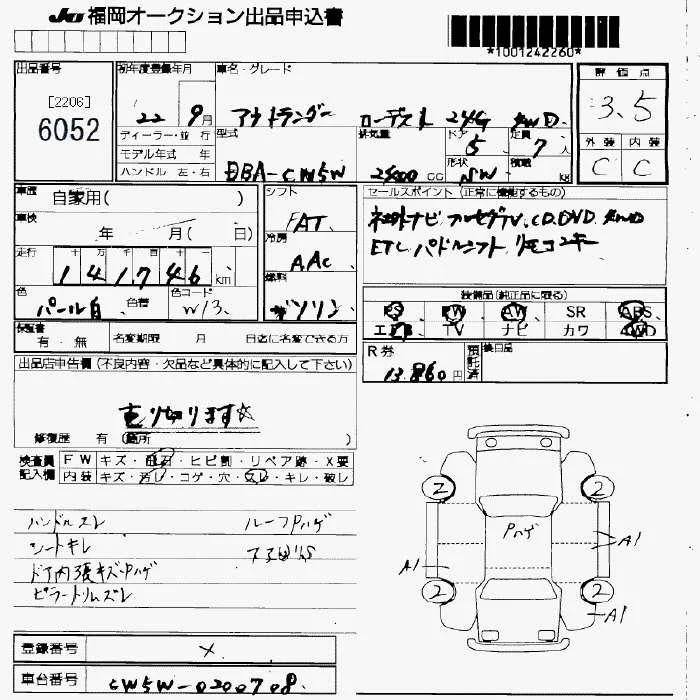 JU 福岡オークション出品申込書
*1001242260*
出品番号
[2206]
6052
初年度登録年月
22 9月
車名・グレード
アウトランダー ローデスト 24G 4WD
ディーラー・並 行
モデル年式 年
ハンドル 左・右
型式
DBA-CW5W
排気量
2400 CC
ドア
5
形状
SW
定員
7人
積載
kg
評価点
3.5
外装 内装
C C
車歴
自家用( )
車検
年 月( 日)
走行
十 万 千 百 十 一
141746 km
色
パール白
色替
色コード
W13
シフト
FAT
冷房
AAC
燃料
ガソリン
セールスポイント (正常に機能するもの)
社外ナビ フルセグTV.CD.DVD.4WD
ETC パドルシフト リモコンキー
装備品(純正品に限る)
PS PW AW SR ABS
エアB TV ナビ カワ 4WD
保証書
有・無
名変期限 月 日迄に名変できる方
R券
13.860円
預託済
後日品
出品店申告欄 (不良内容・欠品など具体的に記入して下さい)
売り切ります☆
修復歴 有 (箇所 )
検査員
記入欄
FW キズ・飛石・ヒビ割・リペア跡・X要
内装 キズ・汚レ・コゲ・穴・スレ・キレ・破レ
ハンドルスレ ルーフPハゲ
シートキレ
ドア内張キズ・Pハゲ
ピラートリムズレ
2 2
Pハゲ
A1
A1
2 2
A1
登録番号 ×
車台番号 CW5W-0200708